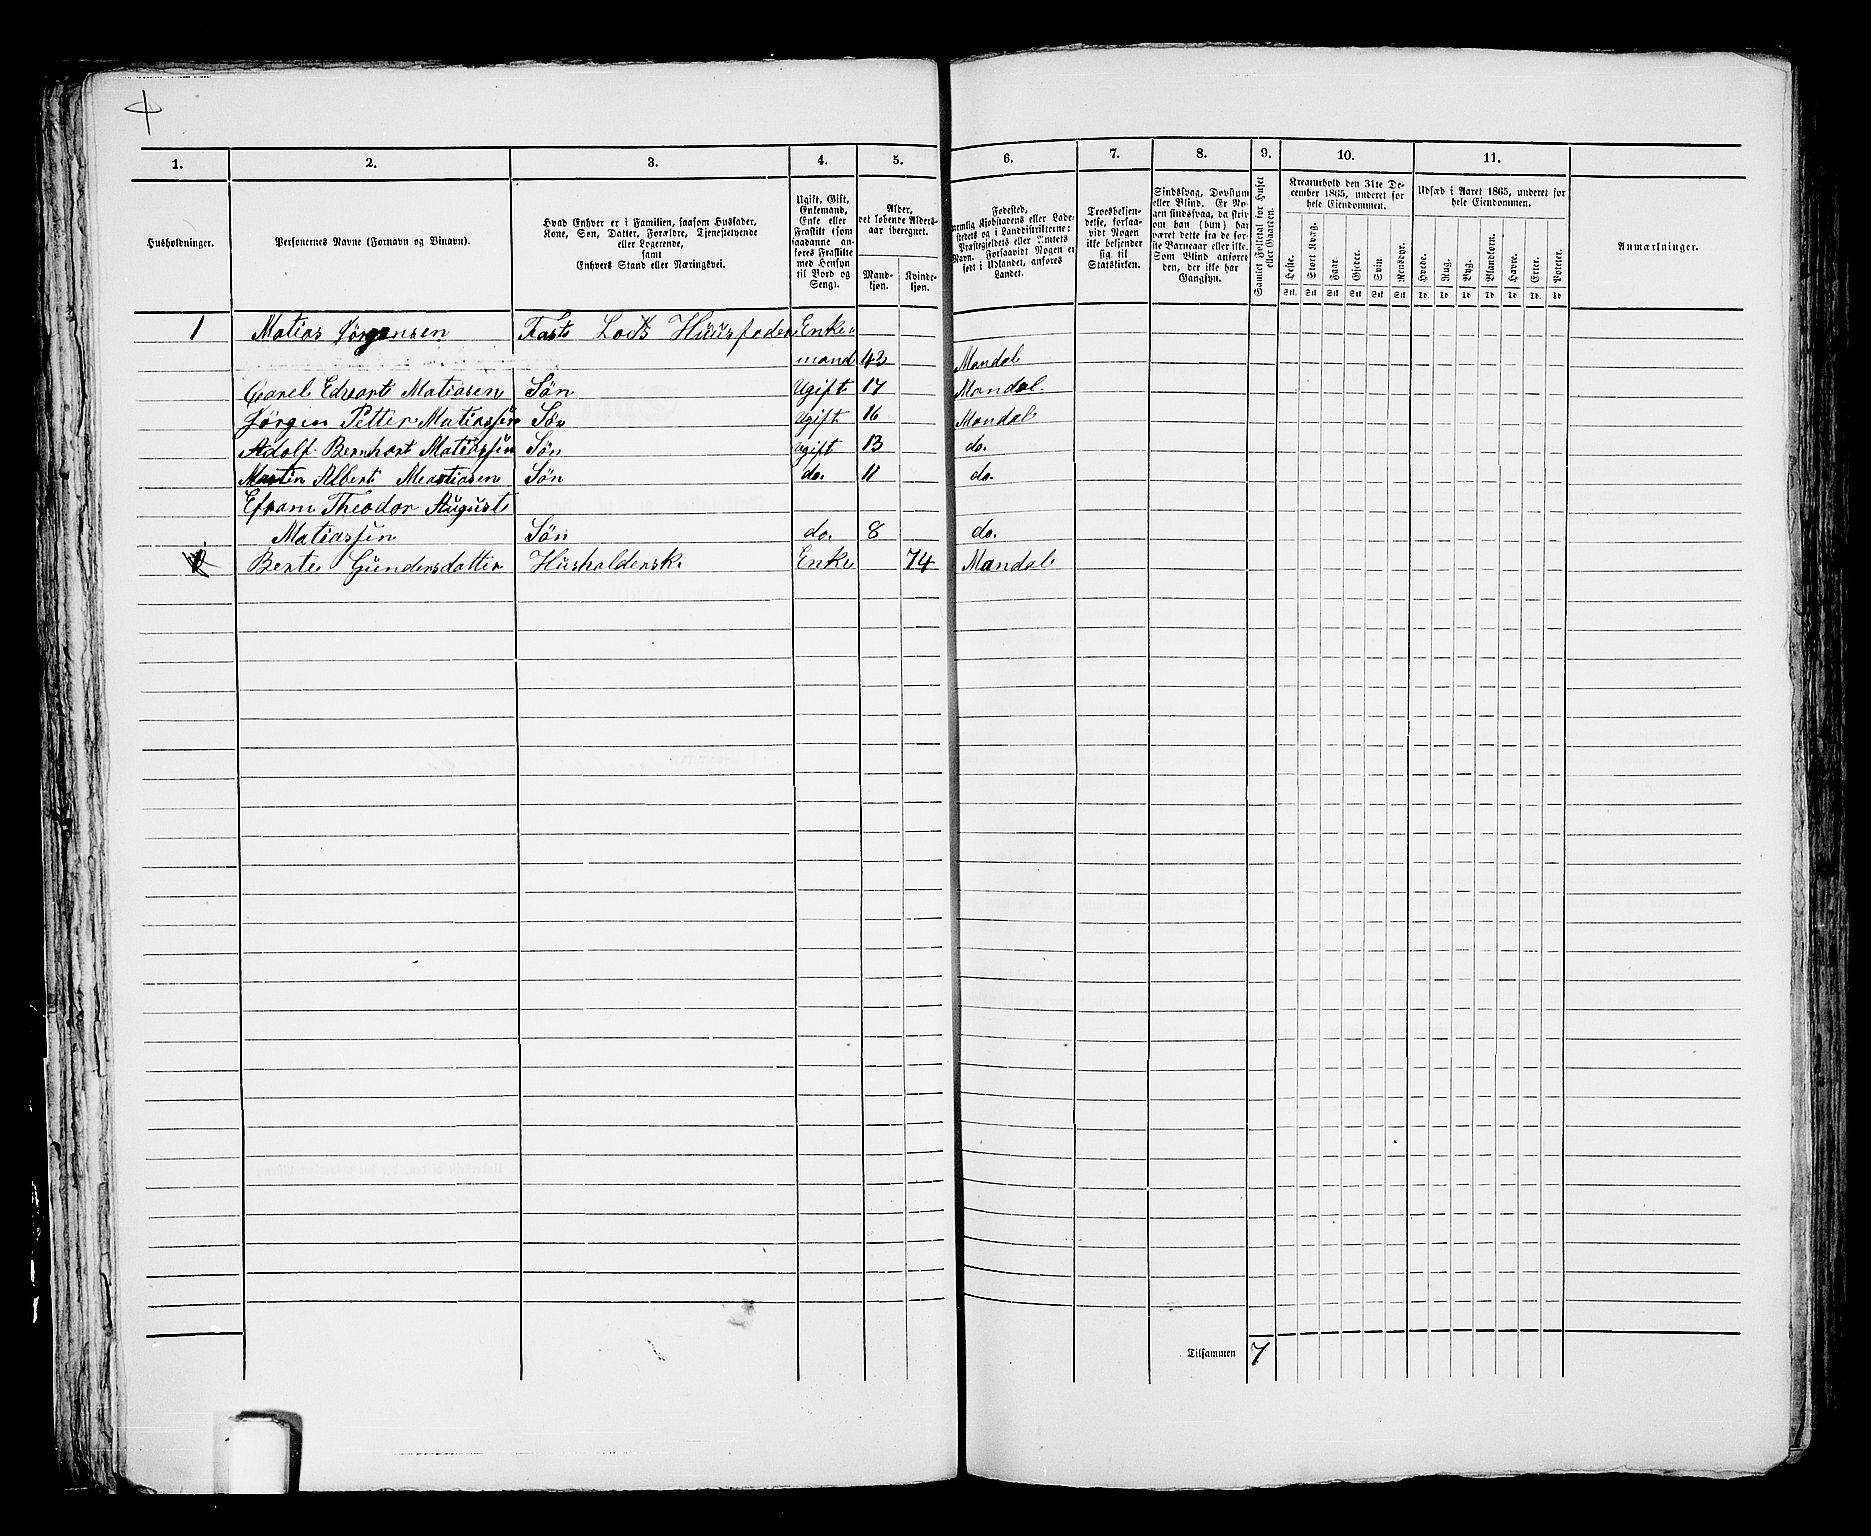 1. 2. 3. 4. 5. 6. 7. 8. 9. 10. 11.
Husholdninger.
Personernes Navne (Fornavn og Binavn).
Hvad Enhver er i Familien, saasom Husfader,
Kone, Søn, Datter, Forældre, Tjenestetyende
eller Logerende,
samt
Enhvers Stand eller Næringsvei.
Ugift, Gift,
Enkemand,
Enke eller
Fraskilt (som
saadanne an-
føres Fraskilte
med Hensyn
til Bord og
Seng).
Alder,
det løbende Alders-
aar iberegnet.
Mand-
kjøn.
Kvinde-
kjøn.
Fødested,
nemlig Kjøbstadens eller Lade-
stedets og i Landdistrikterne:
Præstegjeldets eller Amtets
Navn. Forsaavidt Nogen er
født i Udlandet, anføres
Landet.
Troesbekjen-
delse, forsaa-
vidt Nogen
ikke bekjender
sig til
Statskirken.
Sindssvag, Døvstum
eller Blind. Er No-
gen sindssvag, da skri-
ves om han (hun) har
været dette fra de før-
ste Barneaar eller ikke.
Som Blind anføres
den, der ikke har
Gangsyn.
Samlet Folketal for Huset
eller Gaarden.
Kreaturhold den 31te De-
cember 1865, underet for
hele Eiendommen.
Heste. Stort Kvæg. Faar. Gjeder. Svin. Rensdyr.
Stk. Stk. Stk. Stk. Stk. Stk.
Udsæd i Aaret 1865, underet for
hele Eiendommen.
Hvede. Rug. Byg. Blandkorn. Havre. Erter. Poteter.
Td. Td. Td. Td. Td. Td. Td.
Anmærkninger.
1 Matias Jørgensen Fast Lods Huusfader Enke
mand 43 Mandal
Carel Edvart Matiasen Søn Ugift 17 Mandal.
Jørgen Petter Matiassen Søn Ugift 16 Mandal
Adolf Bernhart Matiassen Søn ugift 13 do.
Martin Albert Matiasen Søn do. 11 do.
Efram Theodor August
Matiassen Søn do. 8 do.
Berte Gundersdatter Husholderske Enke 74 Mandal
Tilsammen 7